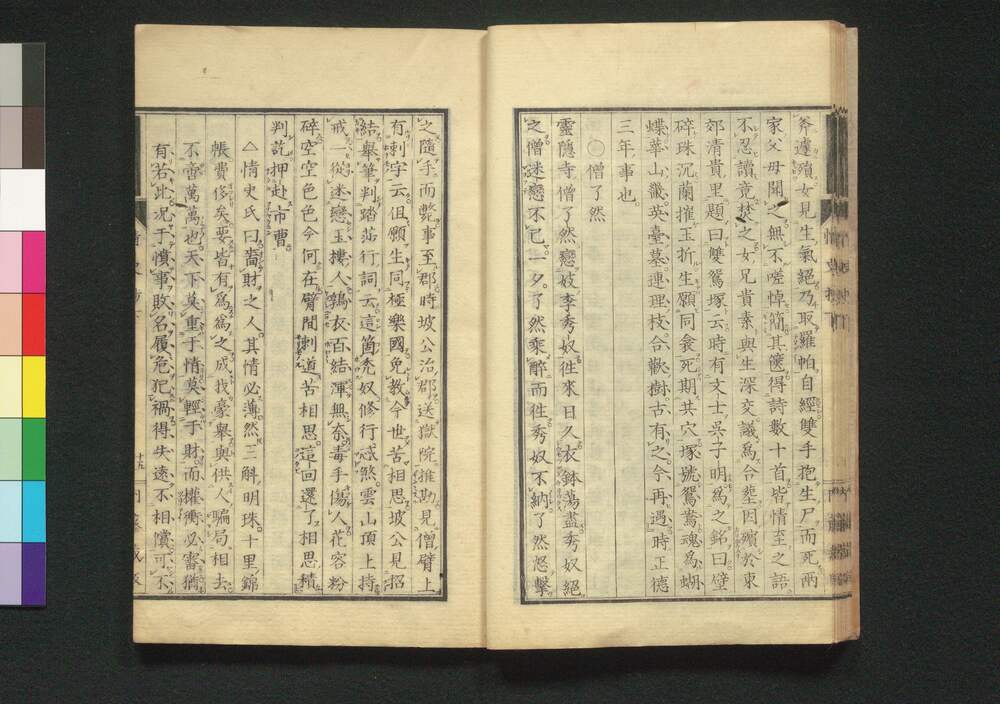 斧遽殞女見生氣絕乃取羅帕自經雙手抱生尸而死兩
家父母聞之無不嗟悼簡其篋得詩數十首皆情至之語
不忍讀竟焚之女兄貴素與生深交議爲合塟因殯於東
郊清貴里題曰雙鴛塚云時有文士吳子明爲之銘曰璧
碎珠沉蘭摧玉折生願同衾死期共穴塚號鴛鴦魂爲蝴
蝶華山畿英臺墓連理枝合歡樹古有之今再遇時正德
三年事也
〇僧了然
靈隱寺僧了然戀妓李秀奴徃來日久衣鉢蕩盡秀奴絕
之僧迷戀不已一夕了然乘醉而徃秀奴不納了然怒擊
之隨手而斃事至郡時坡公治郡送獄院推勘見僧臂上
有刺字云但願生同極樂國免教今世苦相思坡公見招
結舉筆判踏莎行詞云這箇禿奴修行忒煞雲山頂上持
戒一從迷戀玉樓人鶉衣百結渾無奈毒手傷人花容粉
碎空空色色今何在臂間刺道苦相思這回還了相思積
判訖押赴市曹
△情史氏曰嗇財之人其情必薄然三斛明珠十里錦
帳費侈矣要皆有爲爲之成我豪舉輿供人騙局相去
不啻萬萬也天下莫重于情莫輕于財而權衡必審猶
有若此况于憤事敗名履危犯禍得失遠不相償可不